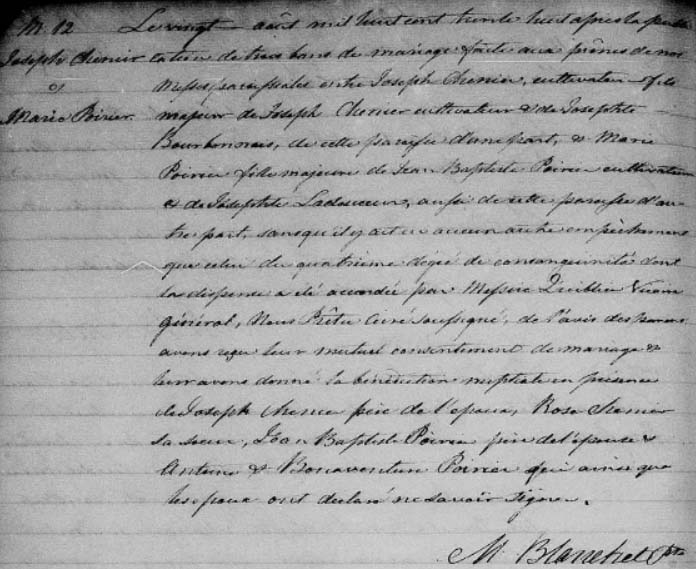 M. 12
Joseph Chenier
&
Marie Poirier
Le vingt août mil huit cent trente huit après la publi
cation de trois bans de mariage faite aux prônes de nos
Messes paroissiales entre Joseph Chenier, cultivateur fils
majeur de Joseph Chenier cultivateur & de Josephte
Bourbonnais, de cette paroisse d'une part, & Marie
Poirier fille majeure de Jean Baptiste Poirier cultivateur
& de Josephte Ladouceur, aussi de cette paroisse d'au
tre part, sans qu'il y ait eu aucun autre empêchement
que celui du quatrième dégré de consanguinité dont
la dispense a été accordée par Messire Quiblier Vicaire
général, Nous Prêtre Curé soussigné, de l'avis des parens
avons reçu leur mutuel consentement de mariage &
leur avons donné la bénédiction nuptiale en présence
de Joseph Chenier père de l'époux, Rose Chenier
sa soeur, Jean Baptiste Poirier père de l'épouse &
Antoine & Bonaventure Poirier qui ainsi que
les époux ont déclaré ne savoir signer.
M Blanchet Ptre